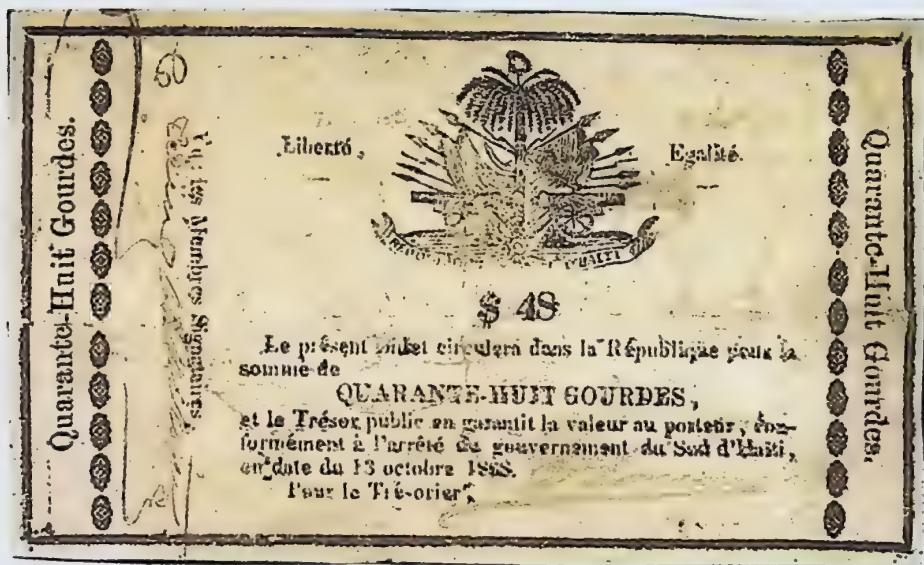 Quarante-Huit Gourdes.
50
Vu: les Membres Signataires,
Liberté,
Egalité.
D'HAITI
$ 48
Le présent billet circulera dans la République pour la
somme de
QUARANTE-HUIT GOURDES,
et le Trésor public en garantit la valeur au porteur, con-
formément à l'arrêté du gouvernement du Sud d'Haïti,
en date du 13 octobre 1868.
Pour le Trésorier,
Quarante-Huit Gourdes,